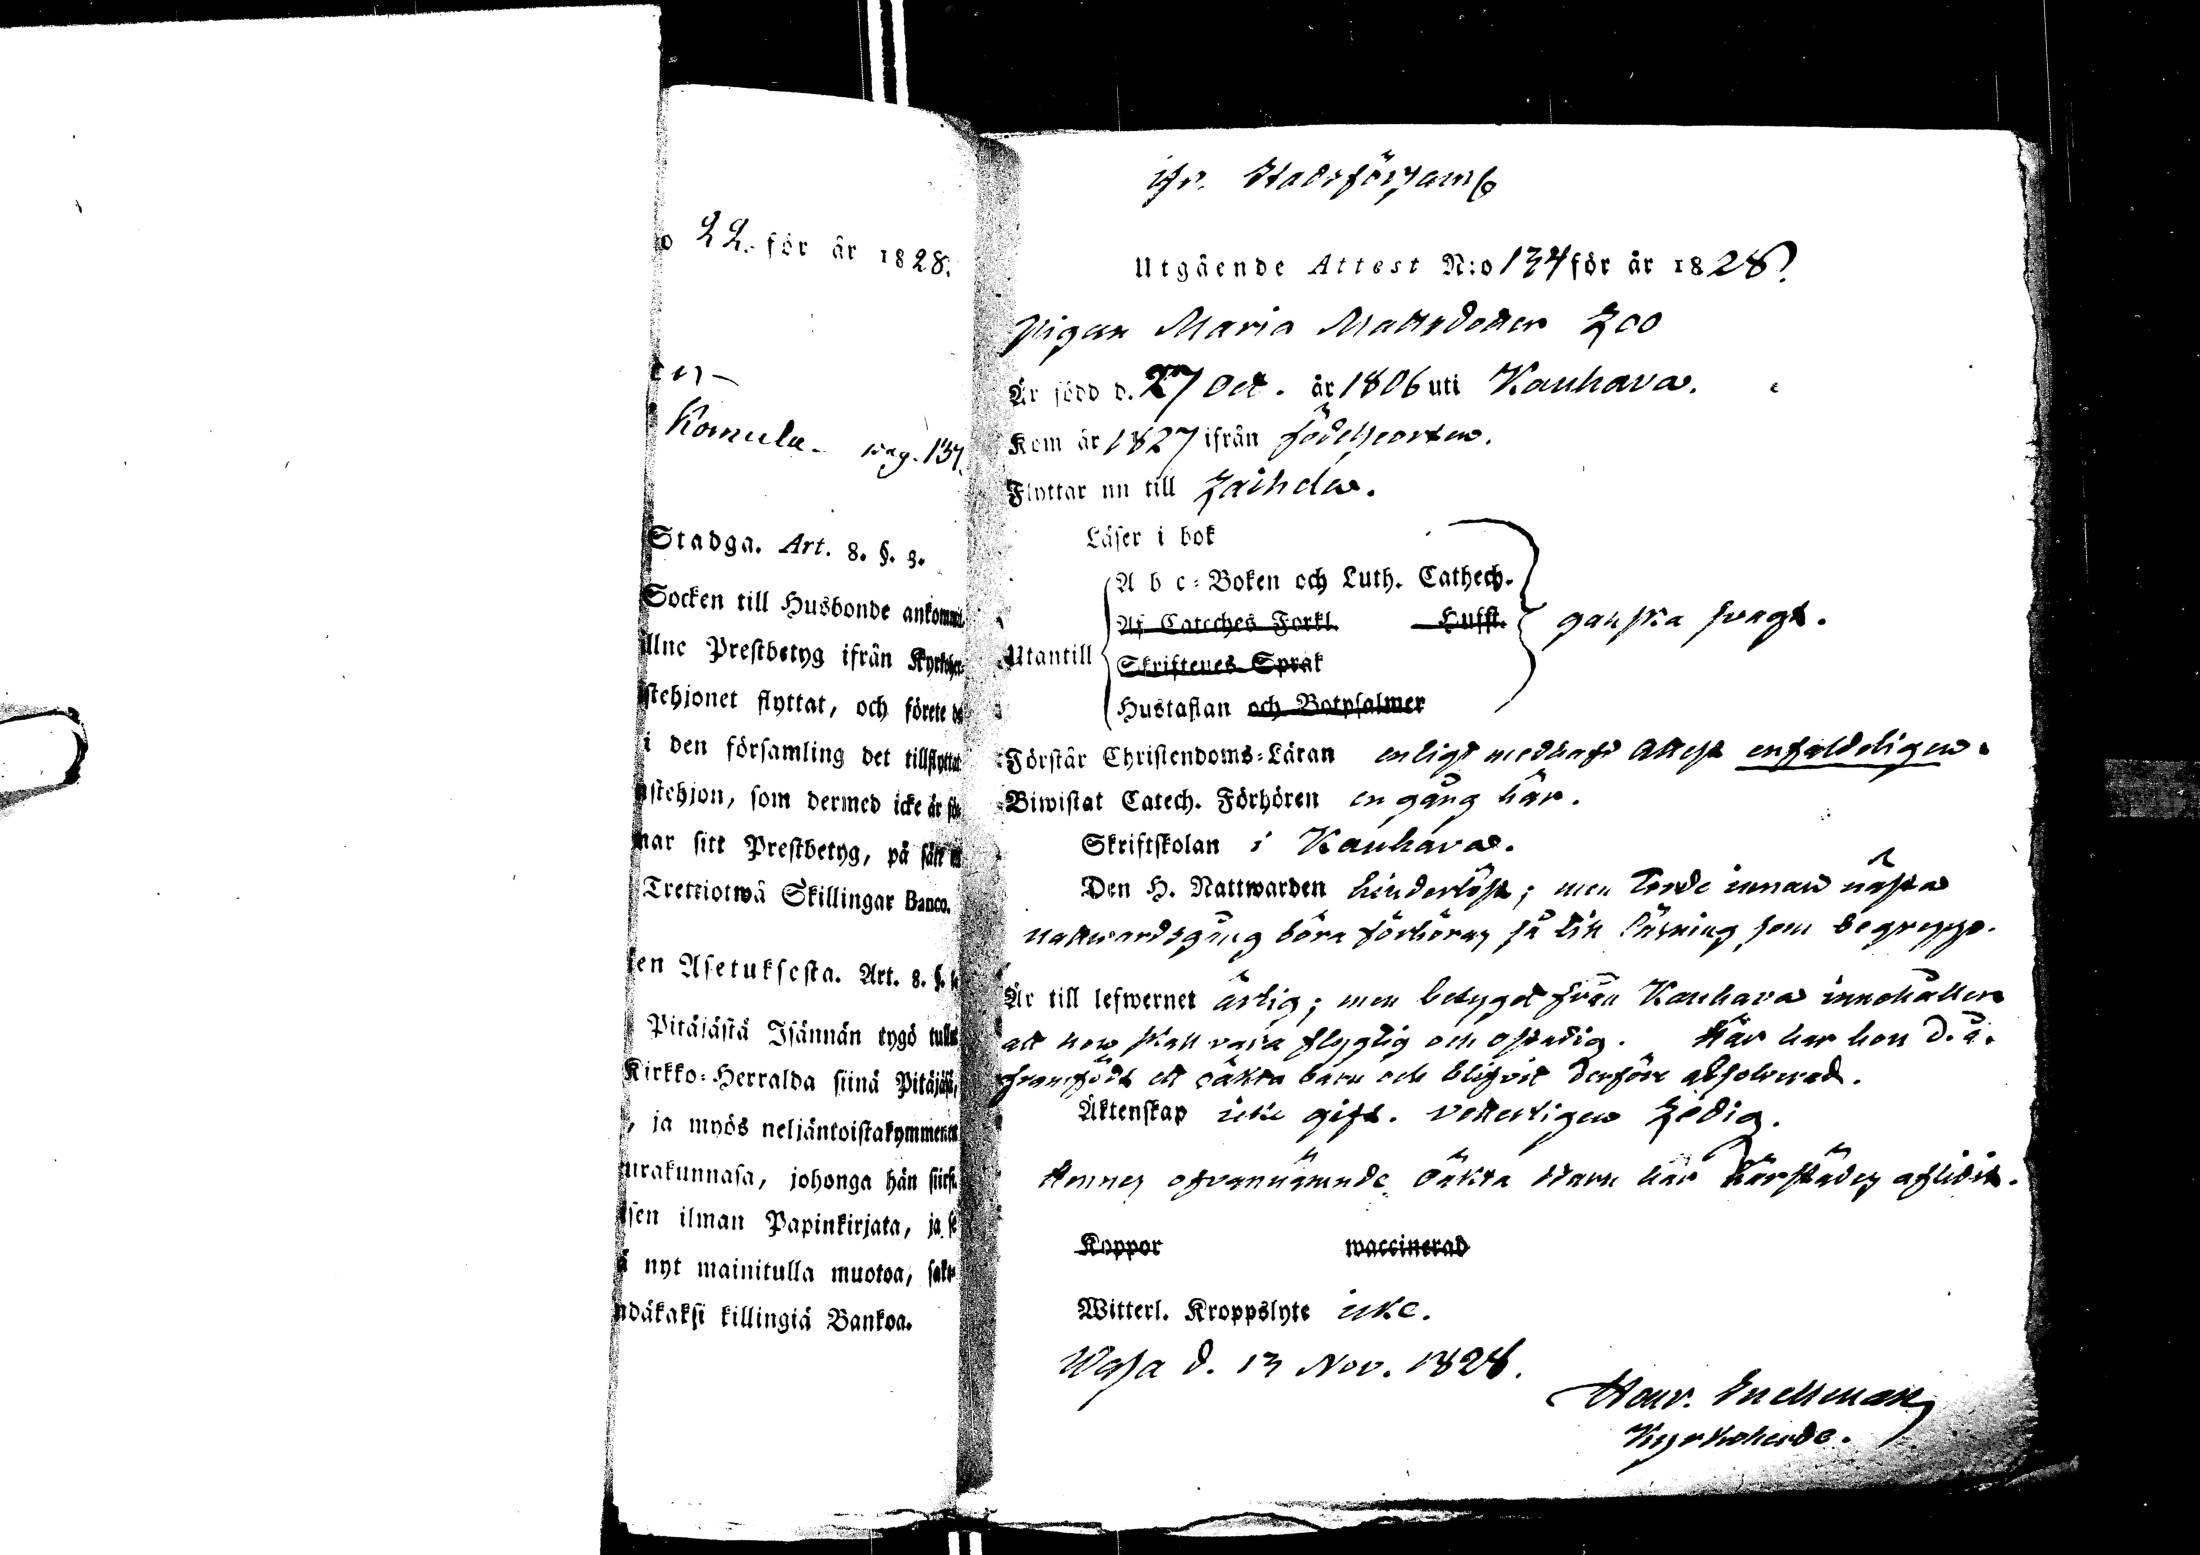 o 22. för år 1828.
Komula. pag. 137.
Stadga. Art. 8. §. 3.
Socken till Husbonde ankommit
llne Prestbetyg ifrån Kyrkoher-
stehjonet flyttat, och förete de
i den församling det tillflyttat
nstehjon, som dermed icke är för-
nar sitt Prestbetyg, på sätt
Trettiotwå Skillingar Banco.
en Asetuksesta. Art. 8. §.
Pitäjästä Isännän tygö tullut
Kirkko-Herralda siinä Pitäjäsä,
, ja myös neljäntoistakymmenen
urakunnasa, johonga hän siirt.
sen ilman Papinkirjata, ja se
ä nyt mainitulla muotoa, sako-
ndäkaksi killingiä Bankoa.
ifr. Stadsförsaml
Utgående Attest N:o 134 för år 1828.
Pigan Maria Mattsdotter Loo
Är född d. 27 Oct. år 1806 uti Kauhava.
Kom år 1827 ifrån födelseorten.
Flyttar nu till Laihela.
Läser i bok
A b c-Boken och Luth. Cathech.
Af Cateches Forkl. Hufft. ganska svagt.
Utantill
Skriftenes Språk
Hustaflan och Botpsalmer
Förstår Christendoms-Läran enligt medhafd Attest enfaldeligen.
Biwistat Catech. Förhören en gång här.
Skriftskolan i Kauhava.
Den H. Nattwarden hinderlöst; men torde innan nästa
nattwardsgång böra förhöras så till läsning som begrepp.
Är till lefwernet ärlig; men betyget från Kauhava innehåller
att hon skall vara flygtig och ostadig. Här har hon d. å.
framfödt ett oäkta barn och blifvit derföre absolverad.
Äktenskap icke gift. Vetterligen Ledig.
Hennes ofvannämnde oäkta Barn har härstädes aflidit.
Koppor waccinerad
Witterl. Kroppslyte icke.
Wasa d. 13 Nov. 1828.
Kyrkoherde.